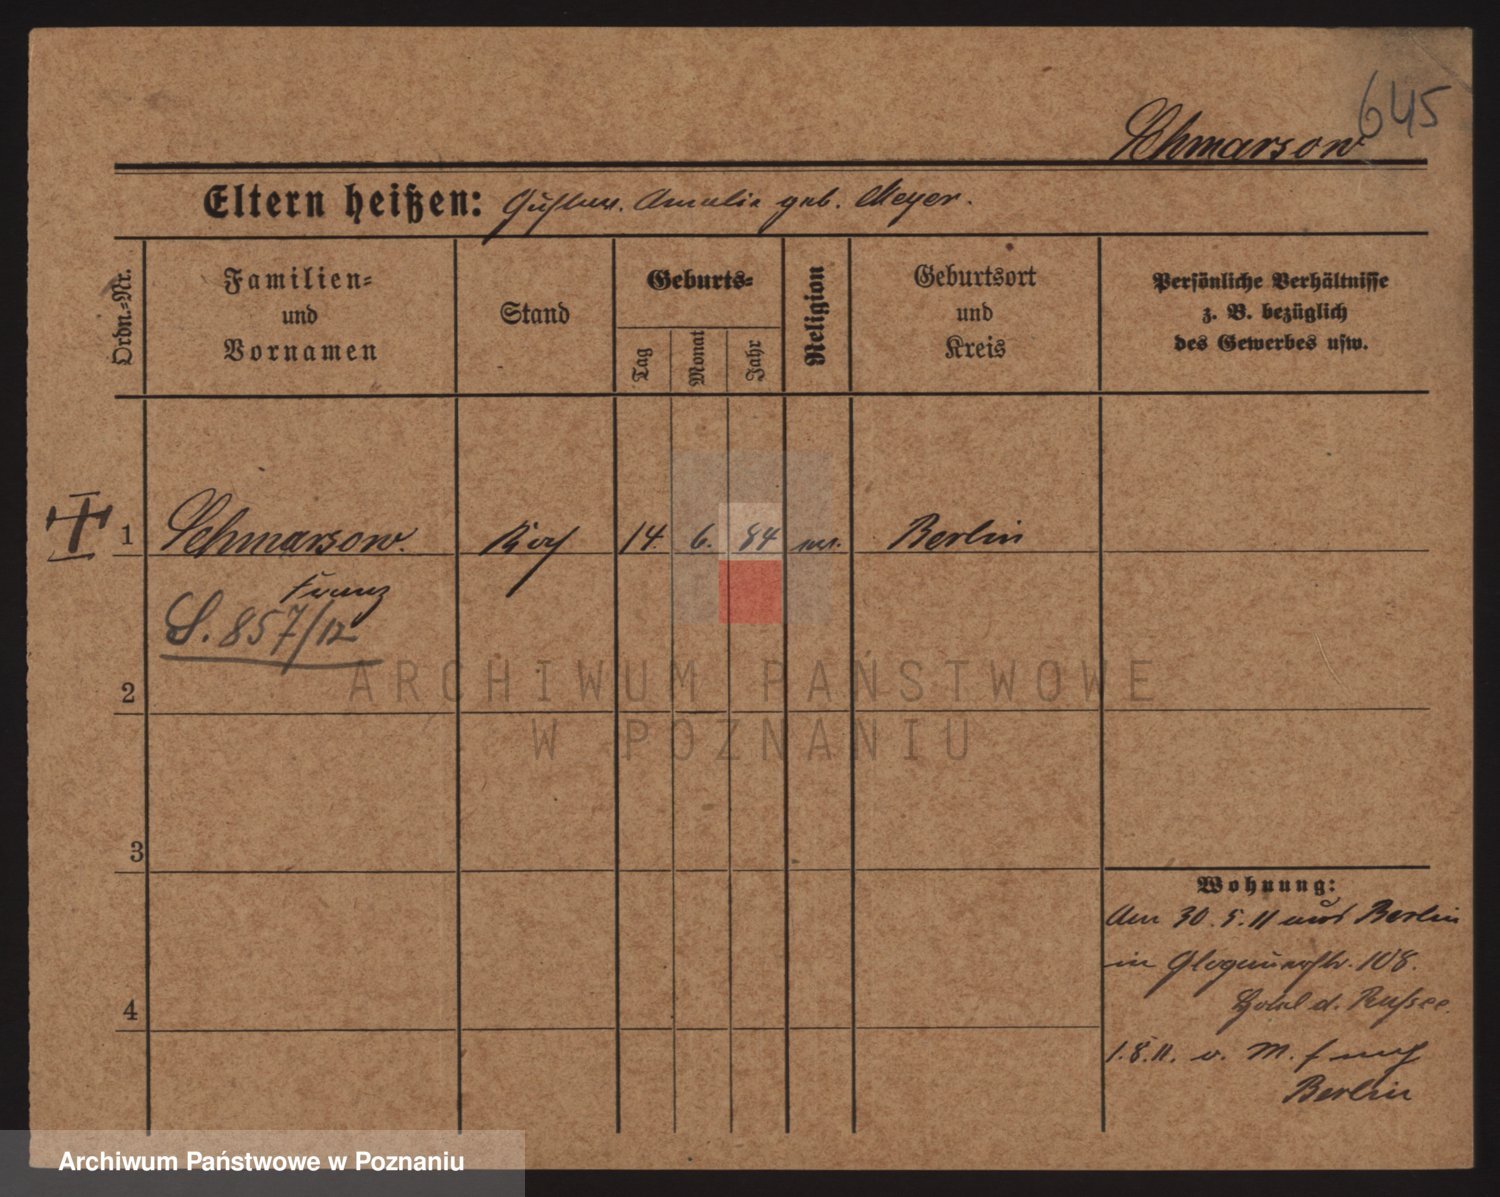 645
Schmarsow
Eltern heißen: Gustav. Amalie geb. Meyer.
Ordn.-Nr.
Familien-
und
Vornamen
Stand
Geburts-
Tag
Monat
Jahr
Religion
Geburtsort
und
Kreis
Persönliche Verhältnisse
z. B. bezüglich
des Gewerbes usw.
1 Schmarsow. Koch 14. 6. 84 ev. Berlin
Franz
S. 857/12
2
3
4
Wohnung:
Am 30. 5. 11 aus Berlin
in Glogauerstr. 108.
Hotel d. Russee.
1. 8. 11. v. M. f nach
Berlin
ARCHIWUM PAŃSTWOWE
W POZNANIU
Archiwum Państwowe w Poznaniu